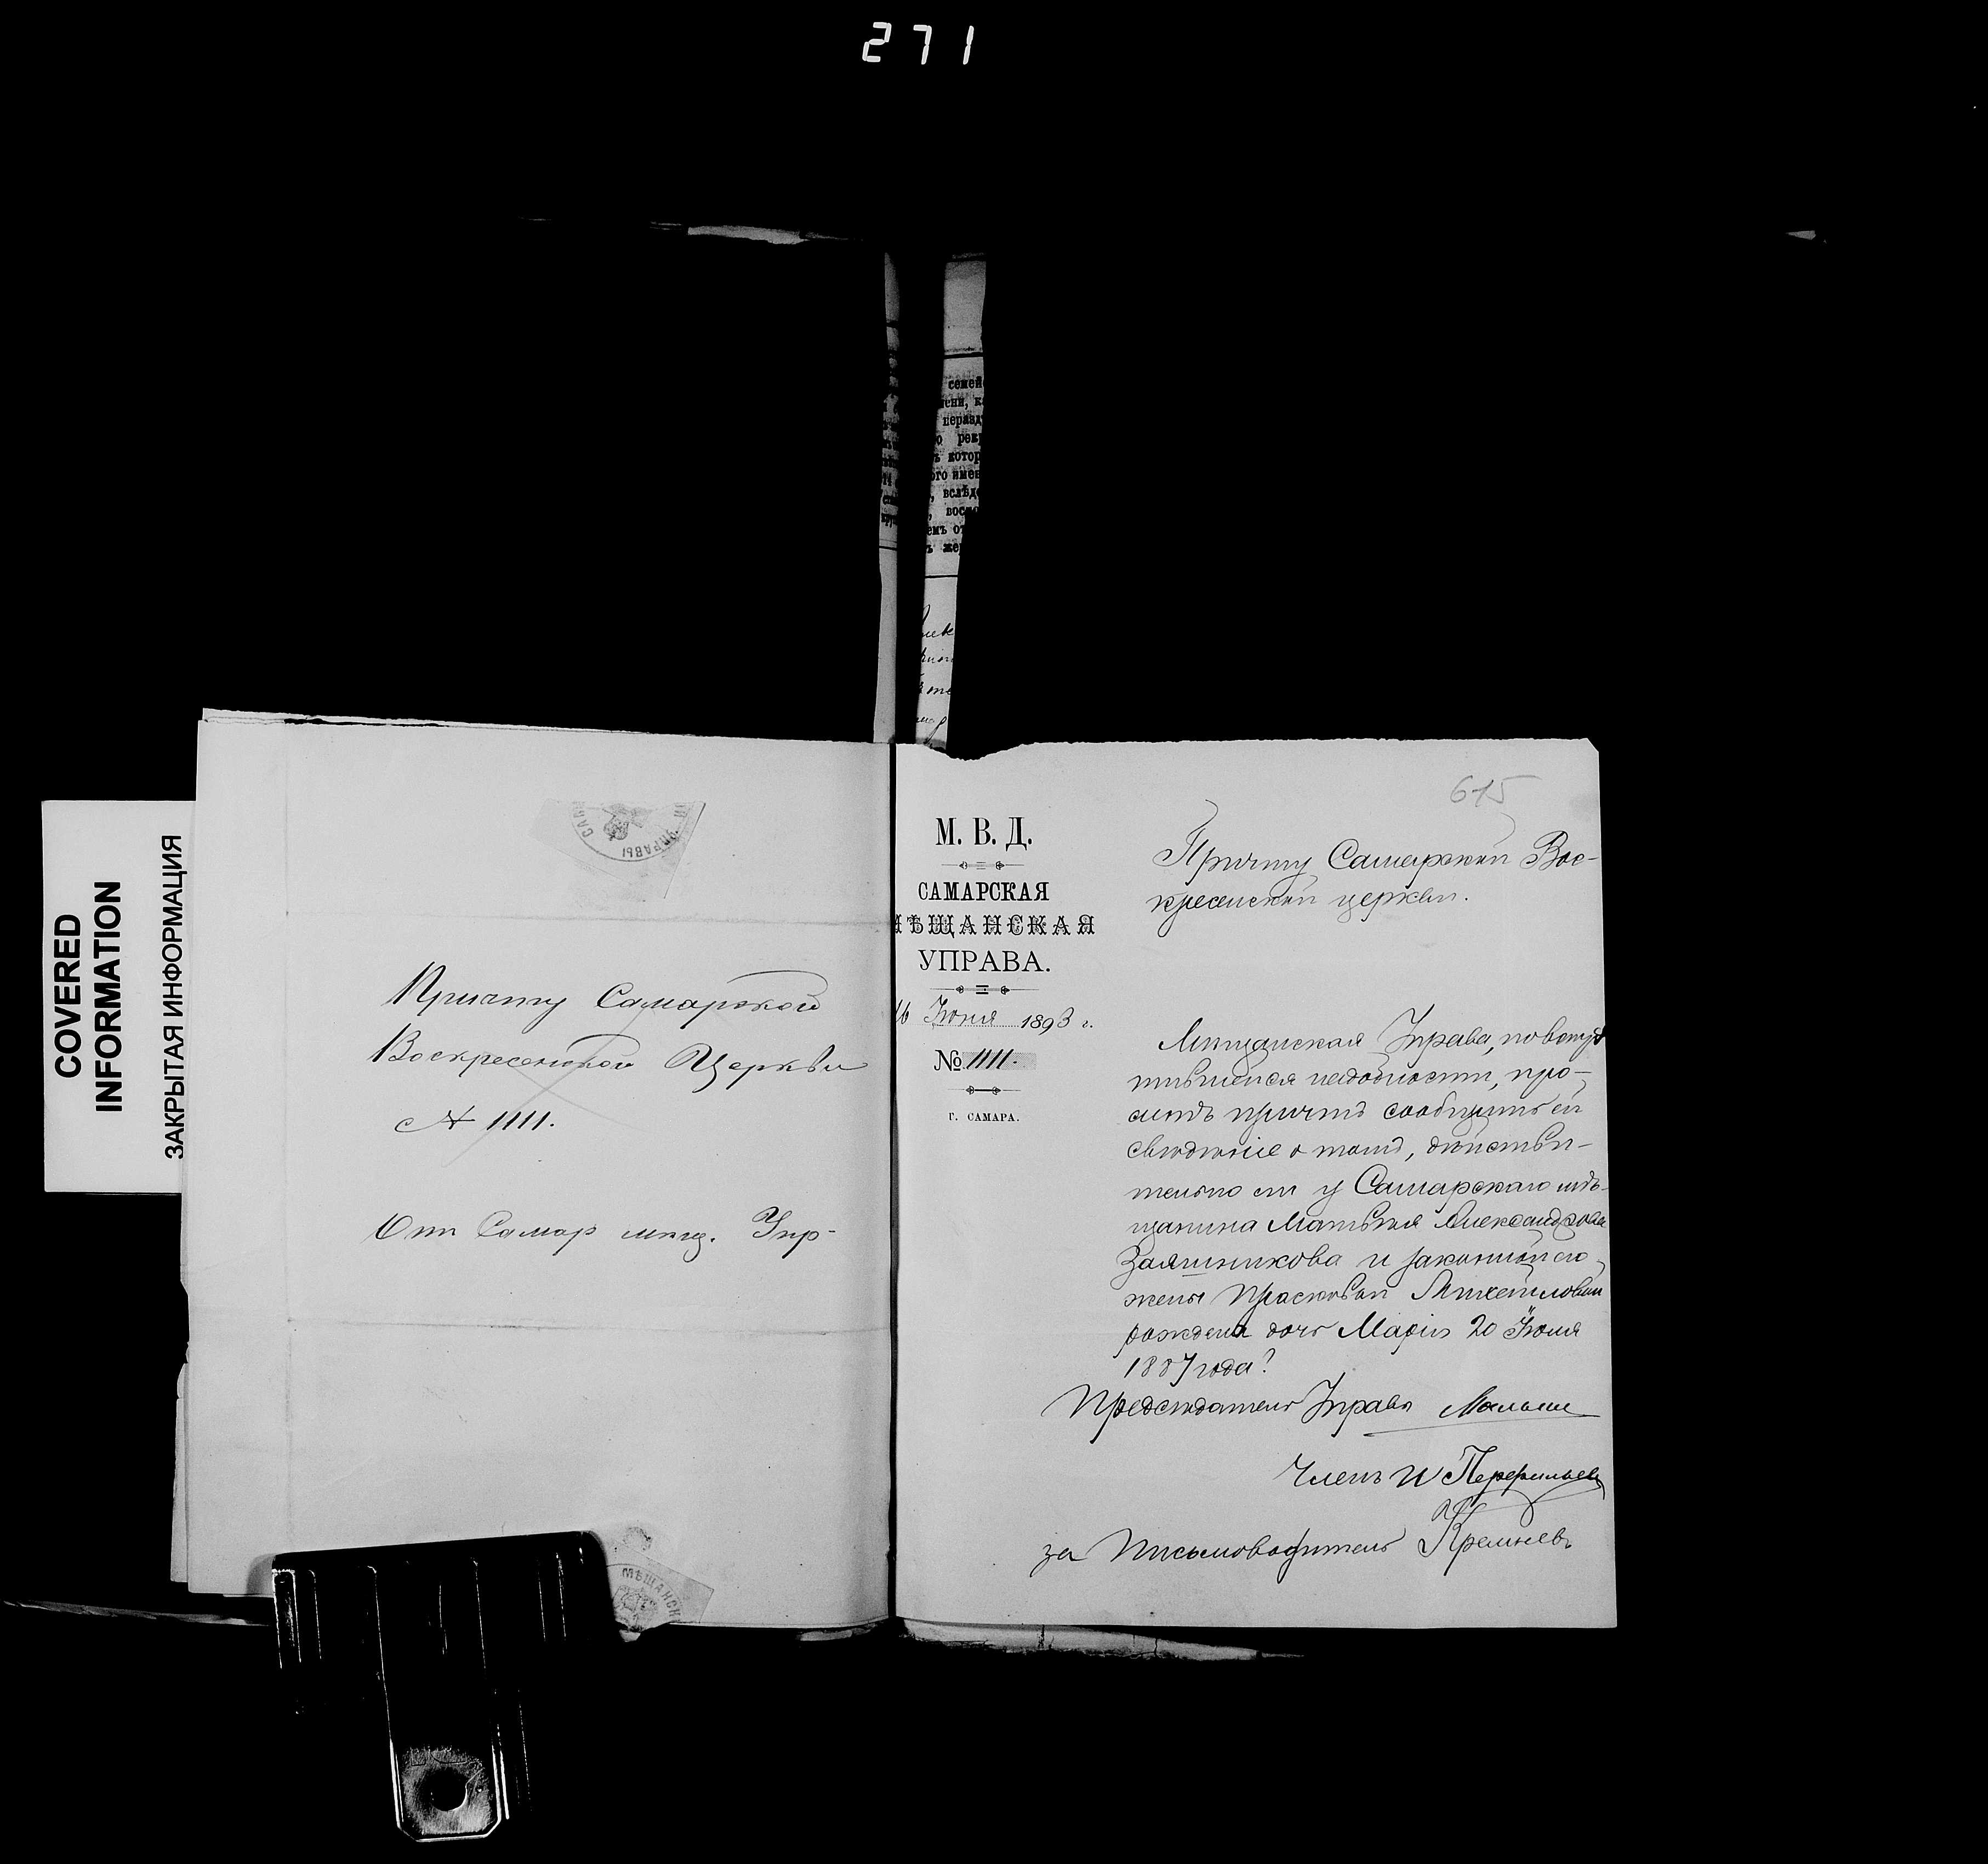 271
COVERED
INFORMATION
ЗАКРЫТАЯ ИНФОРМАЦИЯ
семей
нераз
рек
котор
ого имен
, вслѣд
емъ от
ъ же
УПРАВЫ
Причту Самарской
Воскресенской Церкви
№ 1111.
Отъ Самар мѣщ. Упр-
МѢЩАНСК
615
М. В. Д.
САМАРСКАЯ
МѢЩАНСКАЯ
УПРАВА.
16 Іюня 1893 г.
№ 1111.
Г. САМАРА.
Причту Самарской Вос-
кресенской церкви.
Мѣщанская Управа, по встрѣ
тившейся надобности, про-
ситъ причтъ сообщить ей
свѣдѣніе о томъ, дѣйстви-
тельно ли у Самарскаго мѣ-
щанина Матвѣя Александрова
Заяшникова и законной его
жены Прасковьи Михайловой
рождена дочь Марія 20 Іюля
1887 года?
Предсѣдатель Управы
Членъ И Перфильевъ
за Письмоводитель Кремневъ